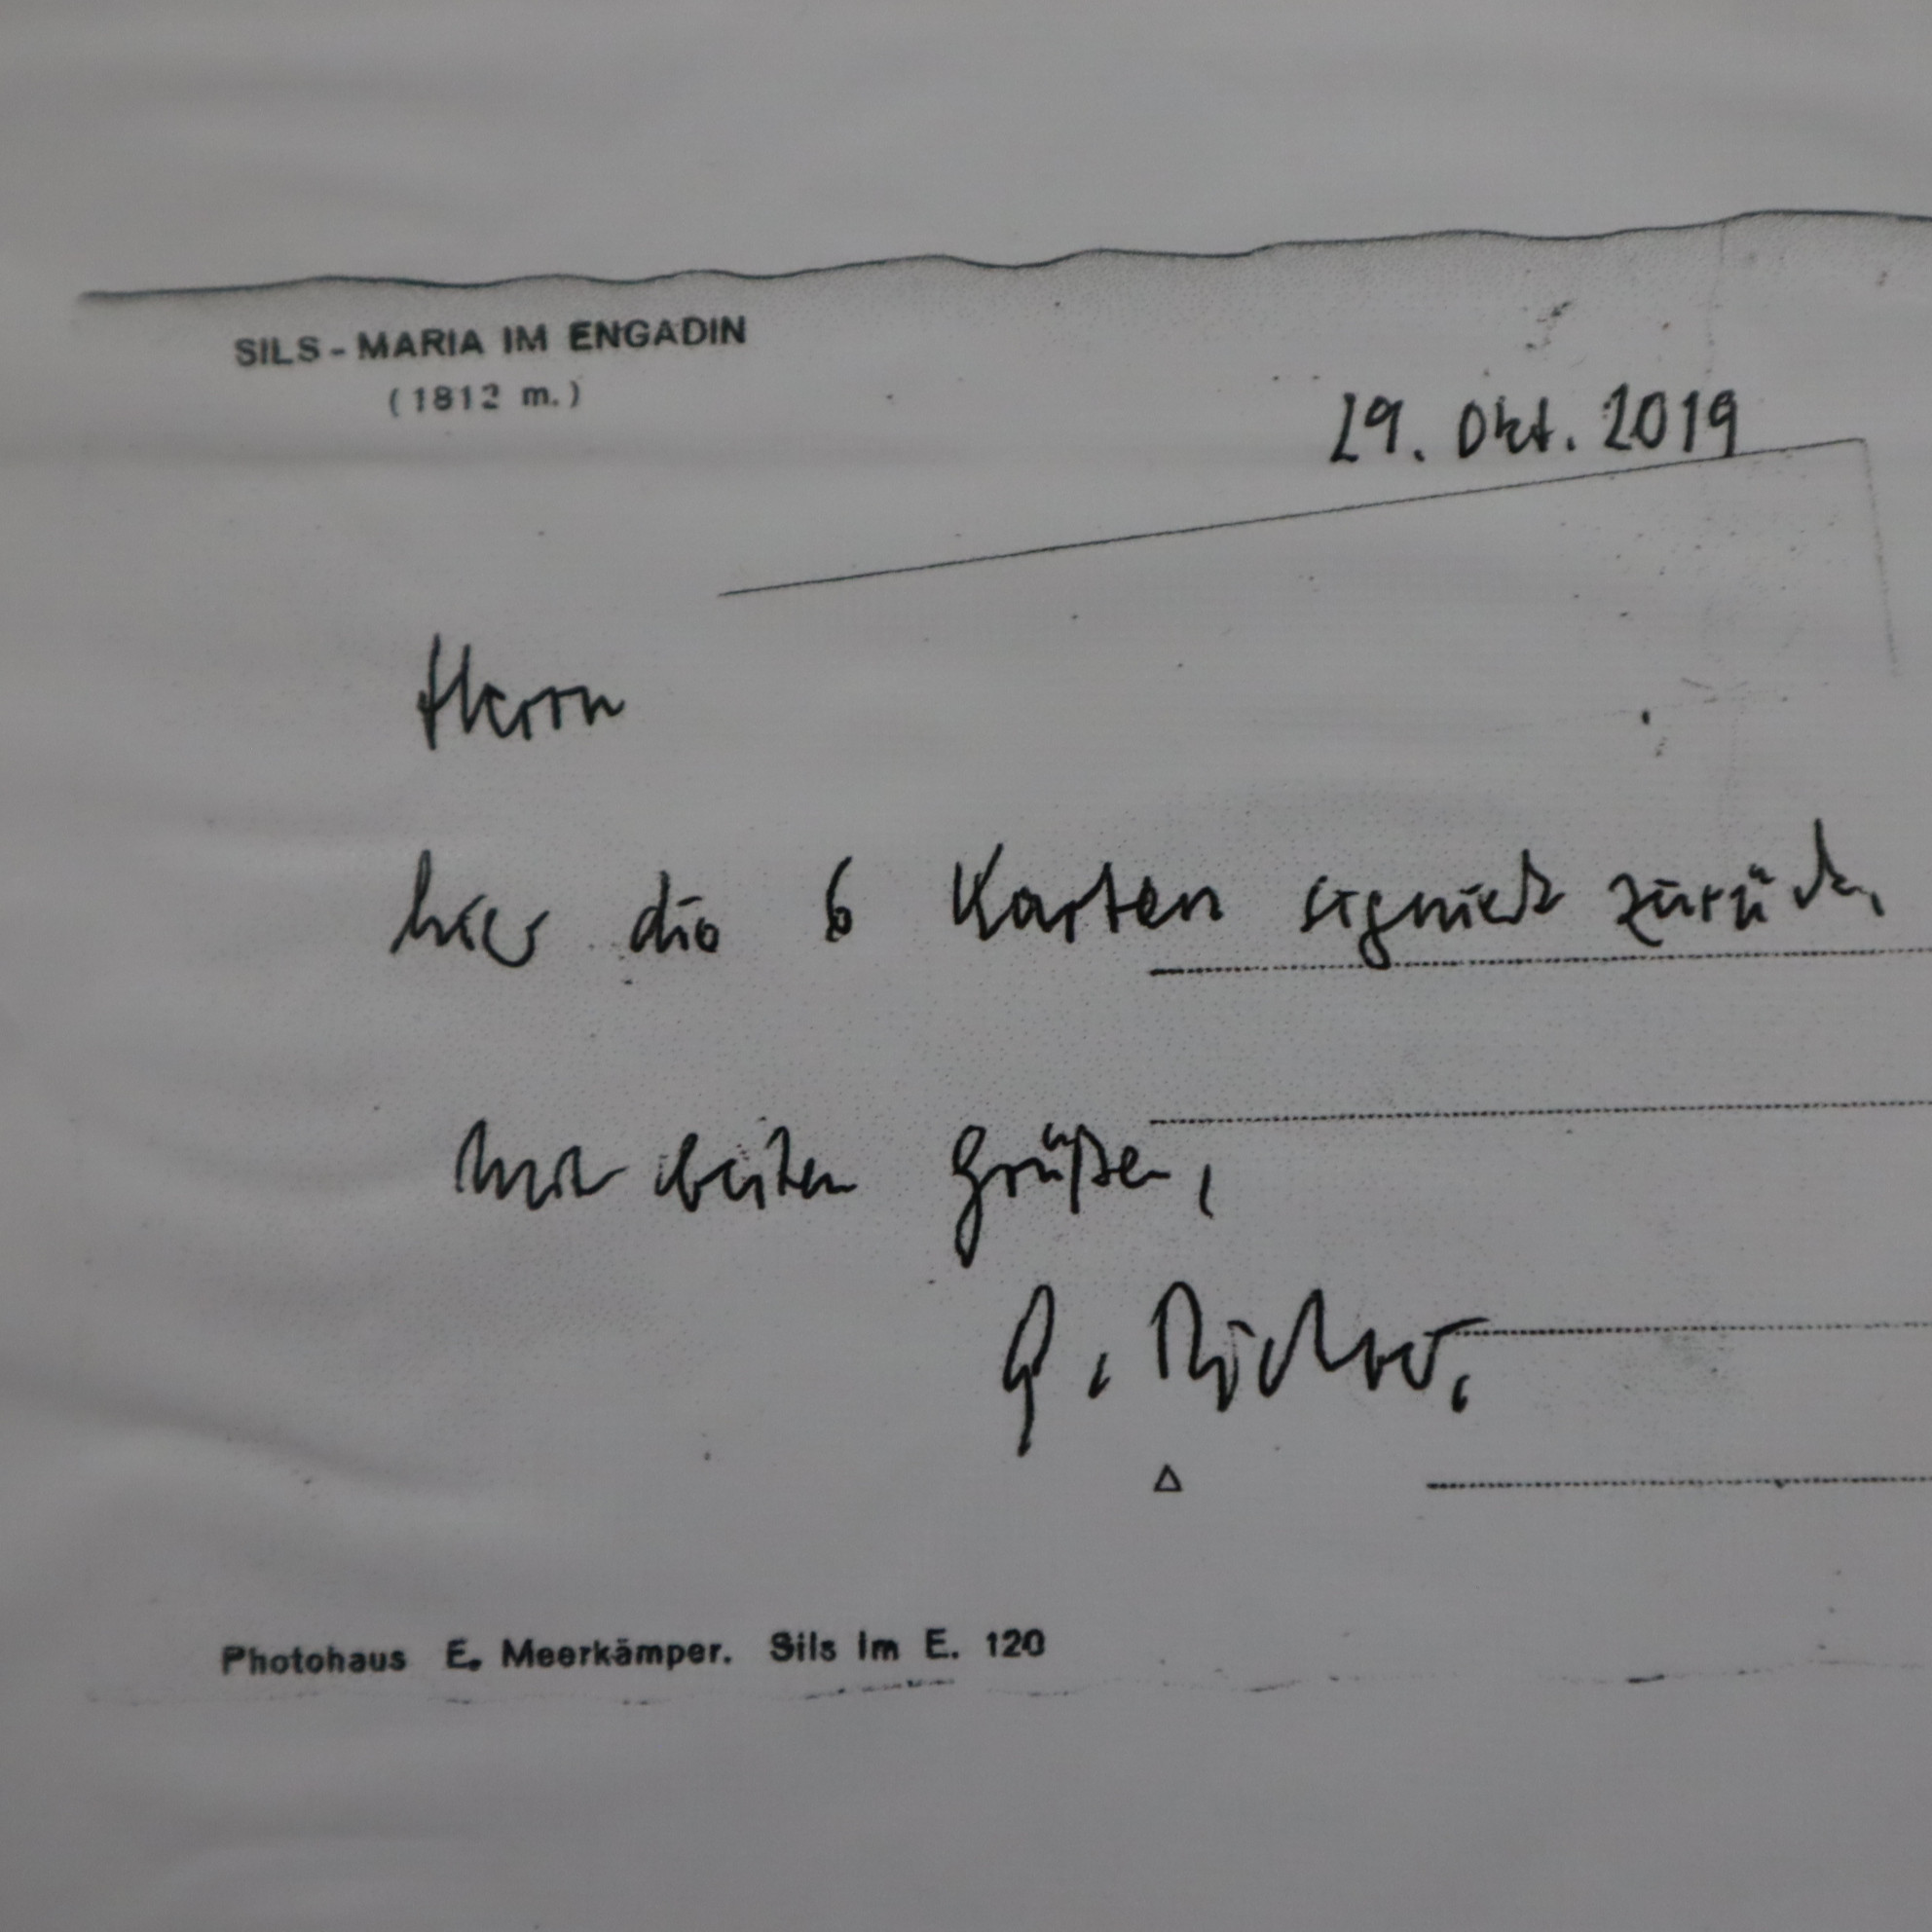 SILS - MARIA IM ENGADIN
(1812 m.)
29. Okt. 2019
Herrn
hier die 6 Karten signiert zurück,
mit besten Grüßen,
G. Richter.
Photohaus E. Meerkämper. Sils im E. 120